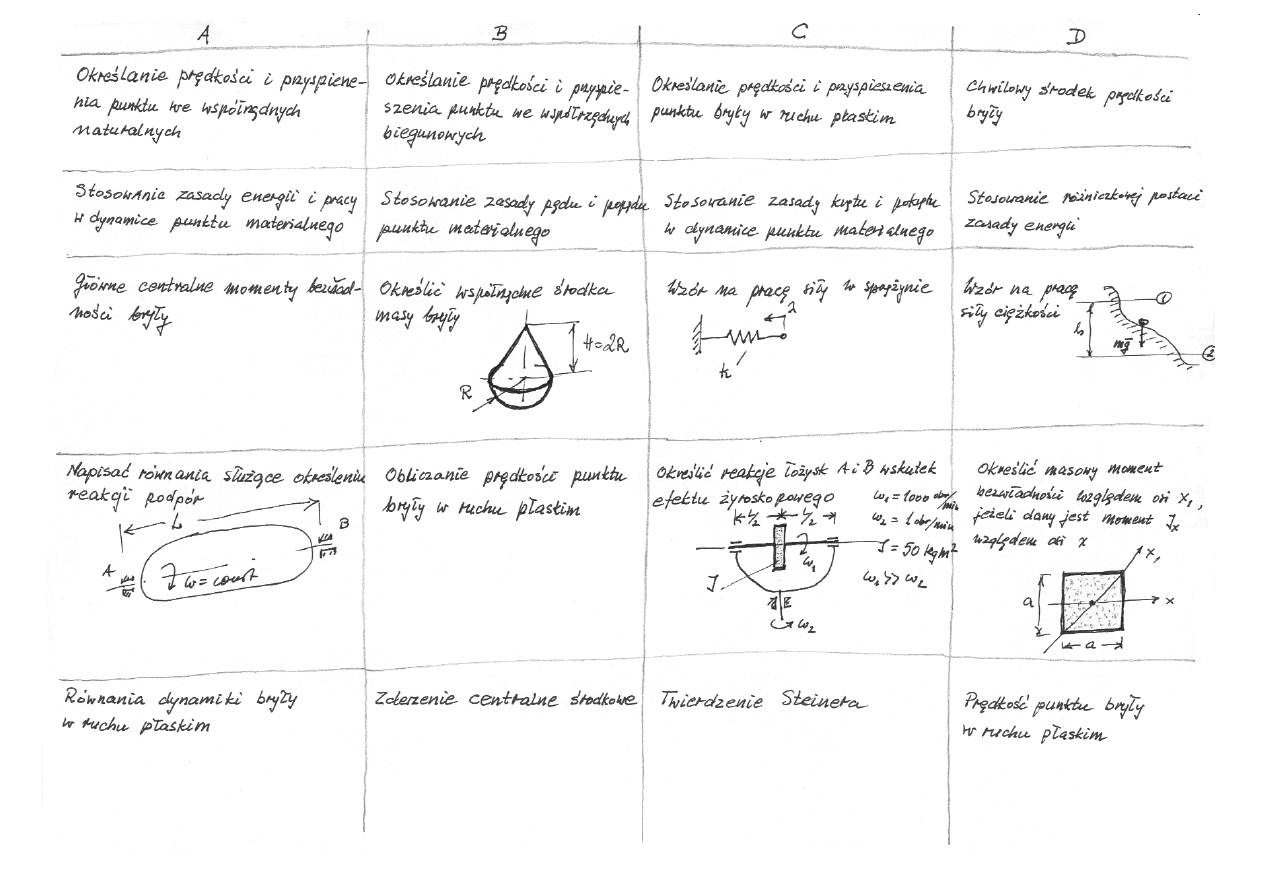 A
B
C
D
Określanie prędkości i przyspiene-
nia punktu we współrzędnych
naturalnych
Określanie prędkości i przyspie-
szenia punktu we współrzędnych
biegunowych
Określanie prędkości i przyspieszenia
punktu bryły w ruchu płaskim
Chwilowy środek prędkości
bryły
Stosowanie zasady energii i pracy
w dynamice punktu materialnego
Stosowanie zasady pędu i popędu
punktu materialnego
Stosowanie zasady krętu i pokrętu
w dynamice punktu materialnego
Stosowanie różniczkowej postaci
zasady energii
Główne centralne momenty bezwład-
ności bryły
Określić współrzędne środka
masy bryły
H=2R
R
Wzór na pracę siły w sprężynie
λ
k
Wzór na pracę
siły ciężkości
1
h
mg
2
Napisać równania służące określeniu
reakcji podpór
L
B
A
ω=const
Obliczanie prędkości punktu
bryły w ruchu płaskim
Określić reakcje łożysk A i B wskutek
efektu żyroskopowego
ω₁=1000 obr/min
L/2 L/2
ω₂=1 obr/min
J=50 kgm²
ω₁
ω₁>>ω₂
J
ω₂
Określić masowy moment
bezwładności względem osi x₁,
jeżeli dany jest moment Jx
względem osi x
x₁
a
x
a
Równania dynamiki bryły
w ruchu płaskim
Zderzenie centralne środkowe
Twierdzenie Steinera
Prędkość punktu bryły
w ruchu płaskim